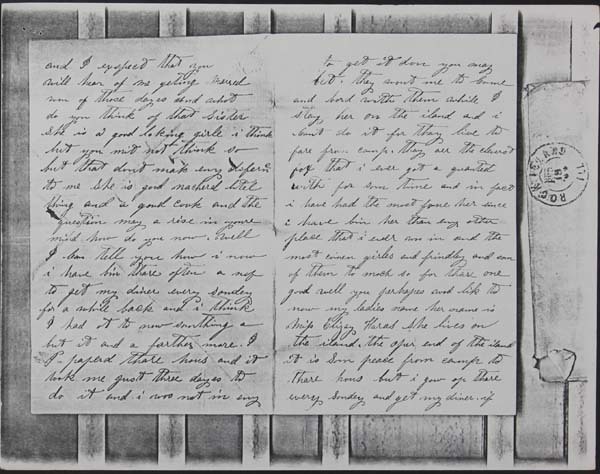 and I exspect that you
will hear of me geting mared
won of those dayes and what
do you think of that Sister
She is a good loking girle i think
but you mit not think so
but that dont mak eny
to me She is good litel
thing and a good cook and the
question may a rise in youre
mind how do you now. Well
I can tell you how i now
i have bin thare often a nuf
to get my diner every sonday
for a while back and i think
I had it to now somthing a
bit it and a farther more. I
I paperd thare hous and it
took me gust three dayes to
do it and i was not in eny
to get it don you may
bet. they want me to Come
and bord with them while I
stay her on the iland and i
Cant do it for they live to
fare from camp. they are the clevest
that i ever got a quanted
with for som time and in fact
i have had the most fone her since
i have bin her than eny other
place that i ever was in and the
most girles and frindly and som
of them to much so for thare one
good well you perhapes and like to
now my ladies name her name is
Miss Elizy She lives on
the iland. the uper end of the iland
it is Som peace from camp to
thare hous but i gow up thare
every Sonday and get my diner if
ROCK ISLAND ILL.